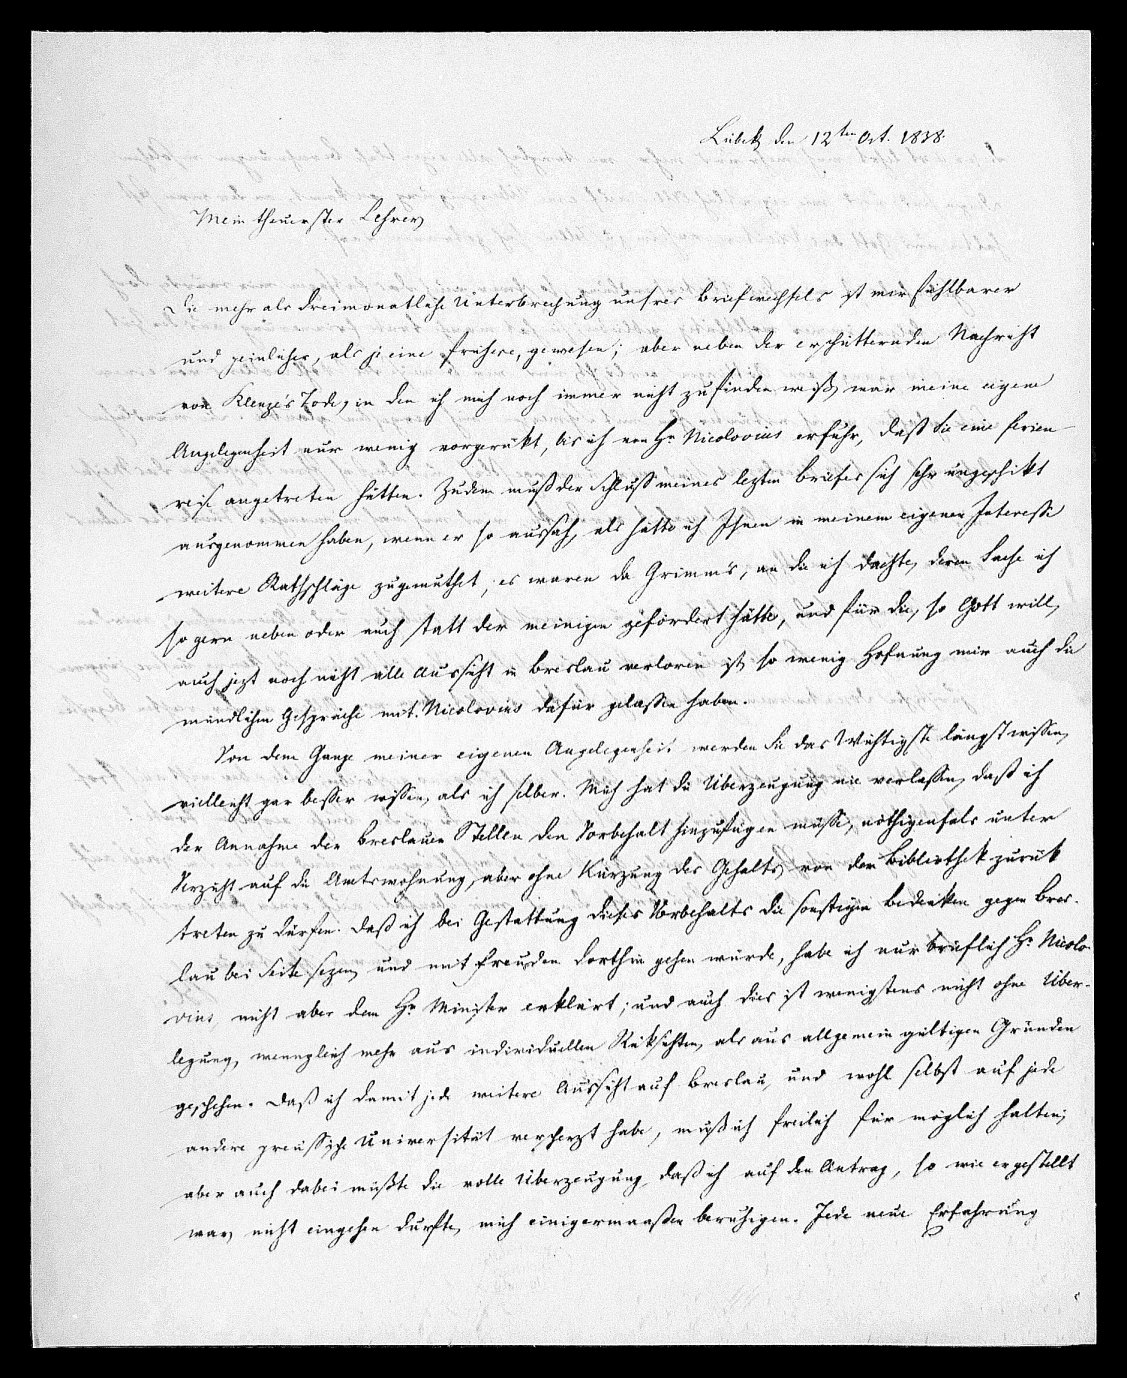 Lübek den 12ten Oct. 1838.
Mein theuerster Lehrer,
Die mehr als dreimonatliche Unterbrechung unsres Briefwechsels ist mir fühlbarer
und peinlicher, als je eine frühere, gewesen; aber neben der erschütternden Nachricht
von Klenze's Tode, in den ich mich noch immer nicht zu finden weiß, war meine eigene
Angelegenheit nur wenig vorgerükt, bis ich von Hr. Nicolovius erfuhr, daß Sie eine Ferien-
reise angetreten hätten. Zudem muß der Schluß meines lezten Briefes sich sehr ungeschikt
ausgenommen haben, wenn er so aussah, als hätte ich Ihnen in meinem eigenen Interesse
weitere Rathschläge zugemuthet; es waren da Grimm's, an die ich dachte, deren Sache ich
so gern neben oder auch statt der meinigen gefördert hätte, und für die, so Gott will,
auch jezt noch nicht alle Aussicht in Breslau verloren ist, so wenig Hofnung mir auch die
mündlichen Gespräche mit Nicolovius dafür gelassen haben.
Von dem Gange meiner eigenen Angelegenheit werden Sie das Wichtigste längst wissen,
vielleicht gar besser wissen, als ich selber. Mich hat die Überzeugung nie verlassen, daß ich
der Annahme der Breslauer Stellen den Vorbehalt hinzufügen müsse, nöthigenfals unter
Verzicht auf die Amtswohnung, aber ohne Kürzung des Gehalts, von der Bibliothek zurük
treten zu dürfen. Daß ich bei Gestattung dieses Vorbehalts die sonstigen Bedenken gegen Bres-
lau bei Seite sezen, und mit Freuden dorthin gehen würde, habe ich nur brieflich Hr. Nicolo-
vius, nicht aber dem Hr. Minister erklärt; und auch dies ist wenigstens nicht ohne Über-
legung, wenngleich mehr aus individuellen Rüksichten, als aus allgemein gültigen Gründen
geschehen. Daß ich damit jede weitere Aussicht auf Breslau, und wohl selbst auf jede
andere preussische Universität verscherzt habe, muß ich freilich für möglich halten;
aber auch dabei müßte die volle Überzeugung, daß ich auf den Antrag, so wie er gestellt
war, nicht eingehen durfte, mich einigermaaßen beruhigen. Jede neue Erfahrung